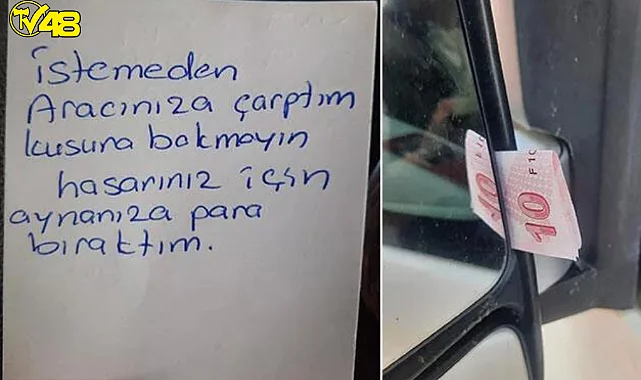 TV48
istemeden
Aracınıza çarptım
kusura bakmayın
hasarınız için
aynanıza para
bıraktım.
10
10
F10